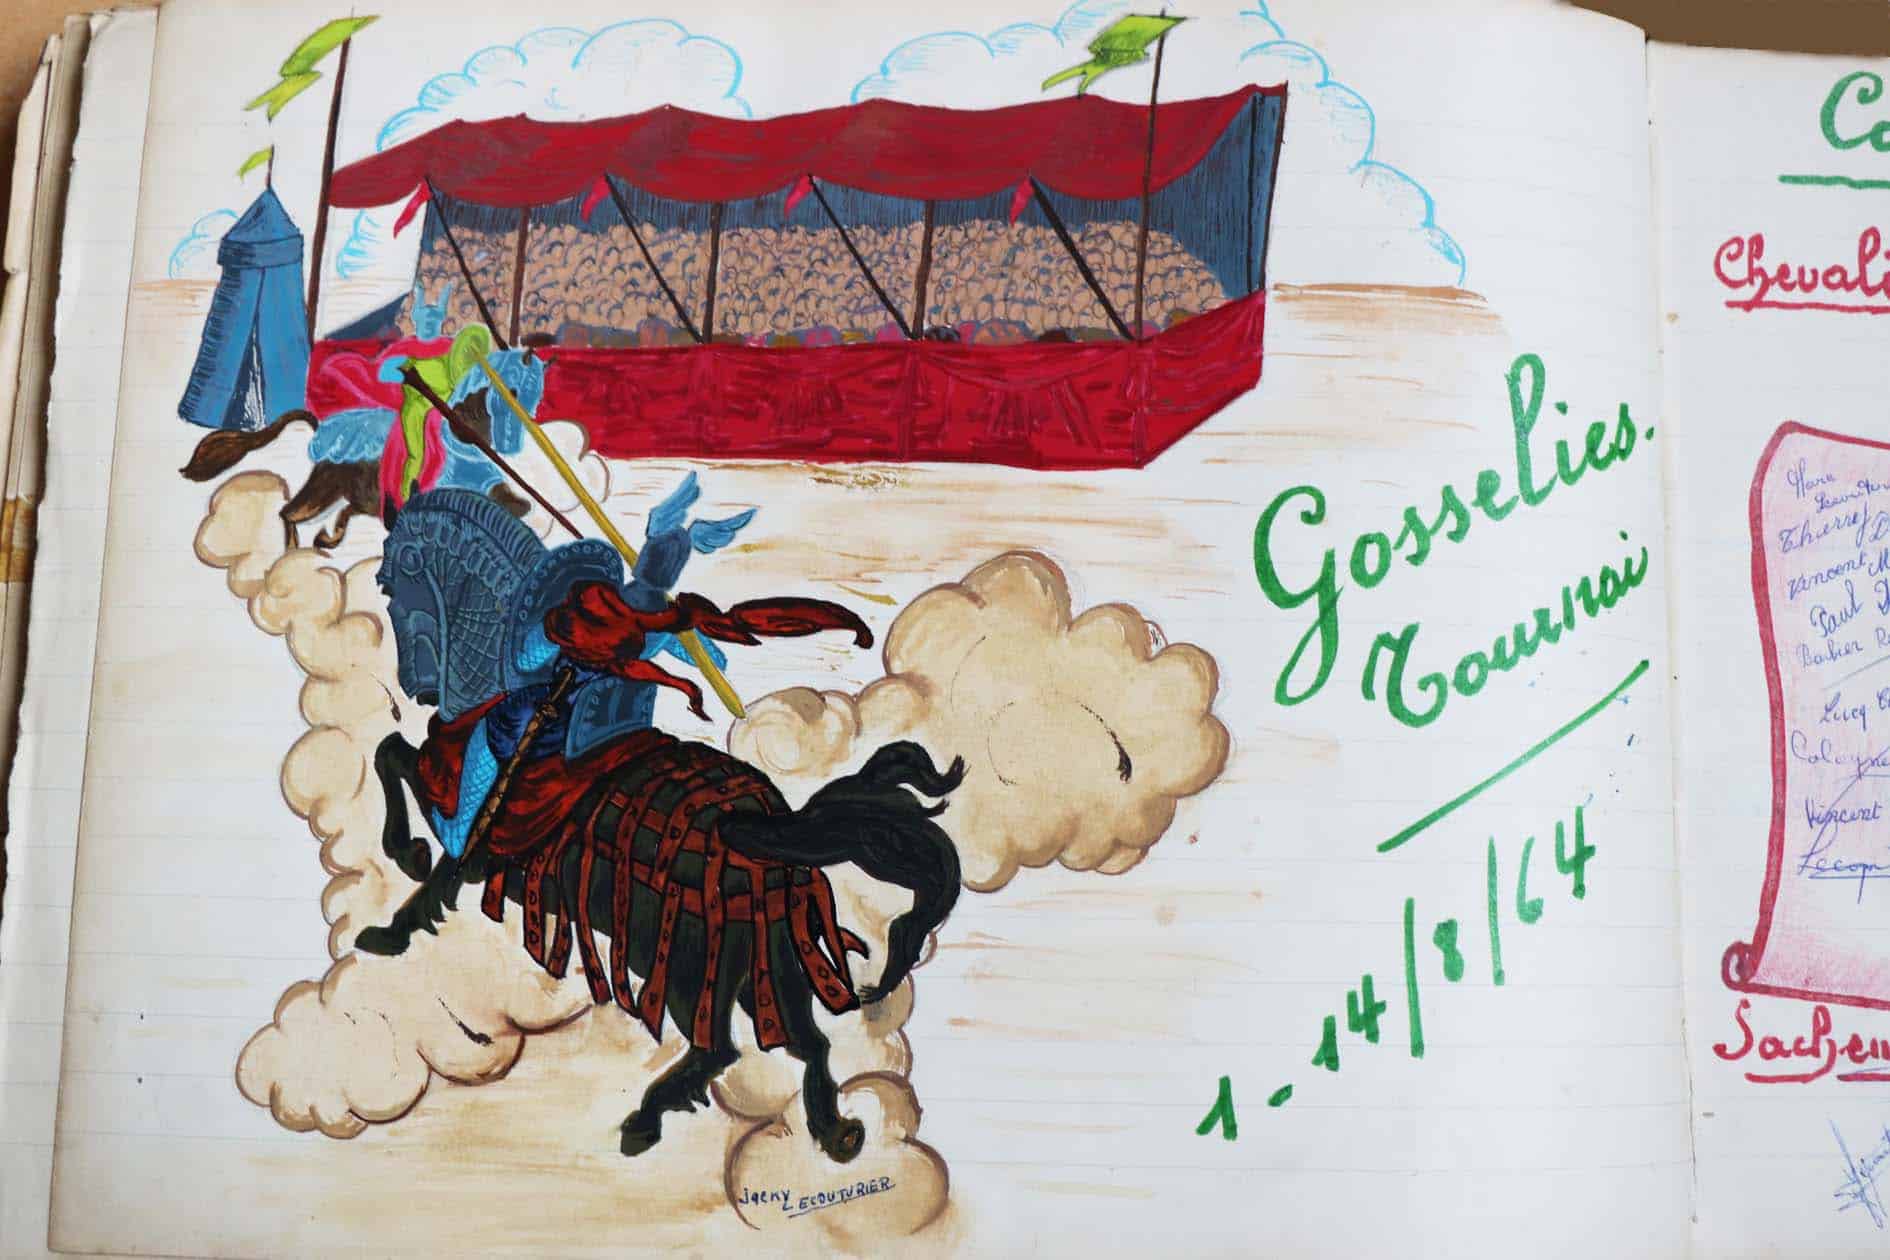 Gosselies.
Tournai
1-14/8/64
jacky LECOUTURIER
Co
Chevali
Marc
Thierry D
Vincent M
Paul D
Barbier R
Lucq
Vincent
Sachem